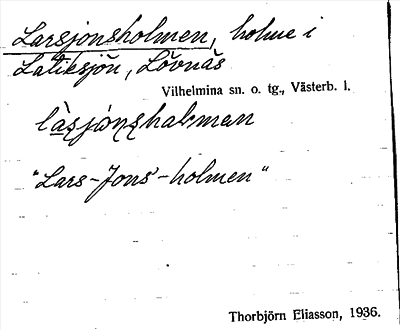 Larsjonsholmen, holme i
Latiksjön, Lövnäs
Vilhelmina sn. o. tg., Västerb. l.
"Lars-Jons'-holmen"
Thorbjörn Eliasson, 1936.